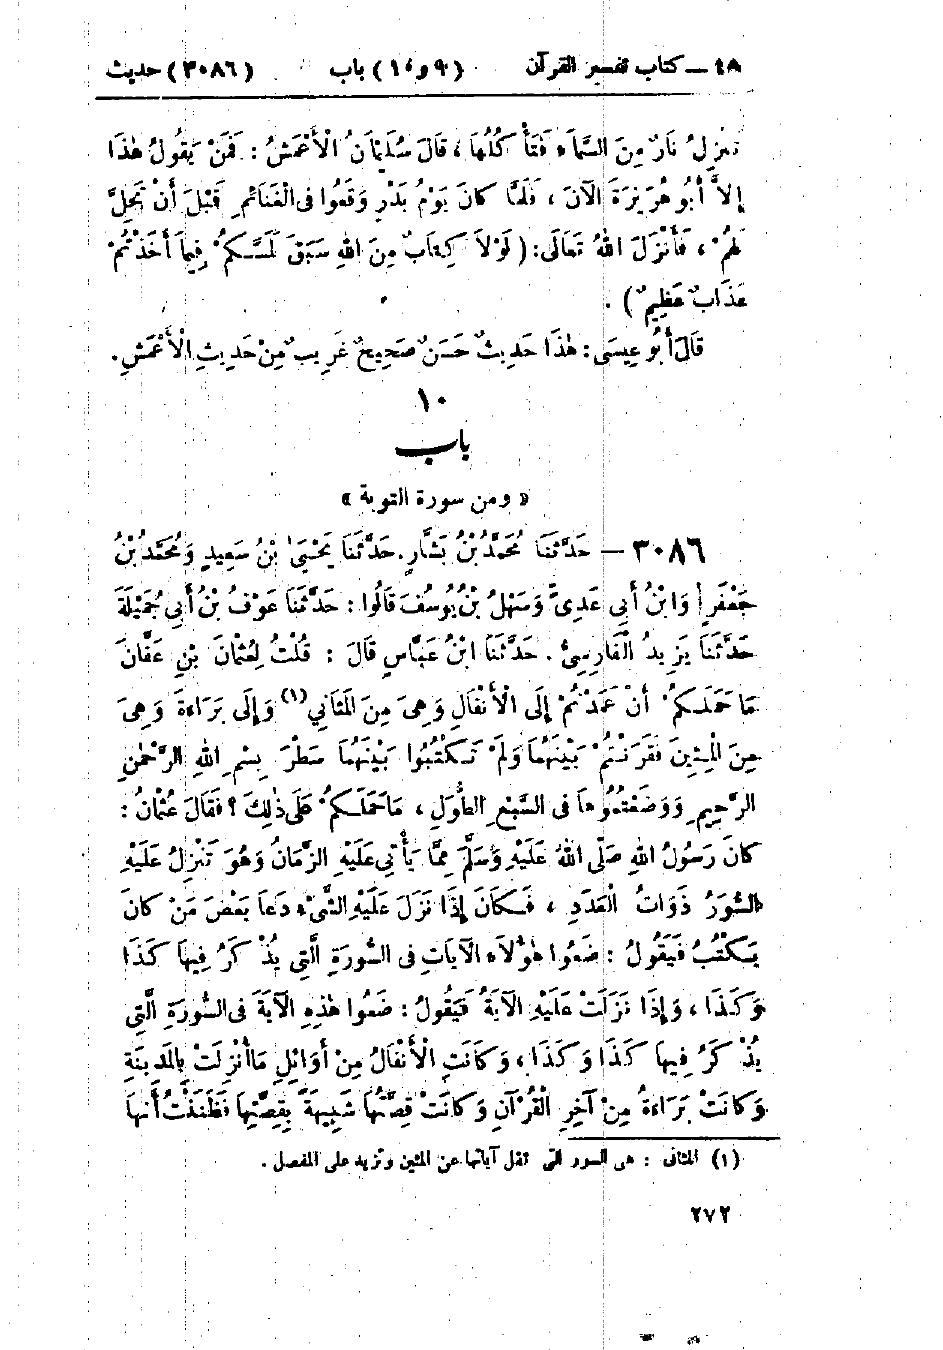 ٤٨ – كتاب تفسير القرآن (٩ و ١٠) باب (٣٠٨٦) حديث
تَنْزِلُ نَارٌ مِنَ السَّمَاءِ فَتَأْكُلُهَا ، قَالَ سُلَيْمَانُ الْأَعْمَشُ : فَمَنْ يَقُولُ هٰذَا
إِلاَّ أَبُو هُرَيْرَةَ الآنَ ، فَلَمَّا كَانَ يَوْمُ بَدْرٍ وَقَعُوا فِى الْغَنَائِمِ قَبْلَ أَنْ تَحِلَّ
لَهُمْ ، فَأَنْزَلَ اللهُ تَعَالَى: ( لَوْلاَ كِتَابٌ مِنَ اللهِ سَبَقَ لَمَسَّكُمْ فِيمَا أَخَذْتُمْ
عَذَابٌ عَظِيمٌ ) .
قَالَ أَبُو عِيسَى : هٰذَا حَدِيثٌ حَسَنٌ صَحِيحٌ غَرِيبٌ مِنْ حَدِيثِ الْأَعْمَشِ .
١٠
باب
« ومن سورة التوبة »
٣٠٨٦ – حَدَّثَنَا مُحَمَّدُ بْنُ بَشَّارٍ . حَدَّثَنَا يَحْيَىٰ بْنُ سَعِيدٍ وَمُحَمَّدُ بْنُ
جَعْفَرٍ وَابْنُ أَبِى عَدِىٍّ وَسَهْلُ بْنُ يُوسُفَ قَالُوا : حَدَّثَنَا عَوْفُ بْنُ أَبِى جُمَيْلَةَ
حَدَّثَنَا يَزِيدُ الْفَارِسِىُّ . حَدَّثَنَا ابْنُ عَبَّاسٍ قَالَ : قُلْتُ لِعُثْمَانَ بْنِ عَفَّانَ
مَا حَمَلَكُمْ أَنْ عَمَدْتُمْ إِلَى الْأَنْفَالِ وَهِىَ مِنَ الْمَثَانِي (١) وَإِلَى بَرَاءَةَ وَهِىَ
مِنَ الْمِئِينَ فَقَرَنْتُمْ بَيْنَهُمَا وَلَمْ تَكْتُبُوا بَيْنَهُمَا سَطْرَ بِسْمِ اللهِ الرَّحْمٰنِ
الرَّحِيمِ وَوَضَعْتُمُوهَا فى السَّبْعِ الطُّوَلِ ، مَا حَمَلَكُمْ عَلَى ذٰلِكَ ؟ فَقَالَ عُثْمَانُ :
كَانَ رَسُولُ اللهِ صَلَّى اللهُ عَلَيْهِ وَسَلَّمَ مِمَّا يَأْتِى عَلَيْهِ الزَّمَانُ وَهُوَ تَنْزِلُ عَلَيْهِ
السُّوَرُ ذَوَاتُ الْعَدَدِ ، فَكَانَ إِذَا نَزَلَ عَلَيْهِ الشَّىْءُ دَعَا بَعْضَ مَنْ كَانَ
يَكْتُبُ فَيَقُولُ : ضَعُوا هٰؤُلاَءِ الآيَاتِ فى السُّورَةِ الَّتِى يُذْكَرُ فِيهَا كَذَا
وَكَذَا ، وَإِذَا نَزَلَتْ عَلَيْهِ الآيَةُ فَيَقُولُ : ضَعُوا هٰذِهِ الآيَةَ فى السُّورَةِ الَّتِى
يُذْكَرُ فِيهَا كَذَا وَكَذَا ، وَكَانَتِ الْأَنْفَالُ مِنْ أَوَائِلِ مَا أُنْزِلَتْ بِالْمَدِينَةِ
وَكَانَتْ بَرَاءَةُ مِنْ آخِرِ الْقُرْآنِ وَكَانَتْ قِصَّتُهَا شَبِيهَةً بِقِصَّتِهَا فَظَنَنْتُ أَنَّهَا
(١) المثانى : هى السور التى تقل آياتها عن المئين وتزيد على المفصل .
٢٧٢